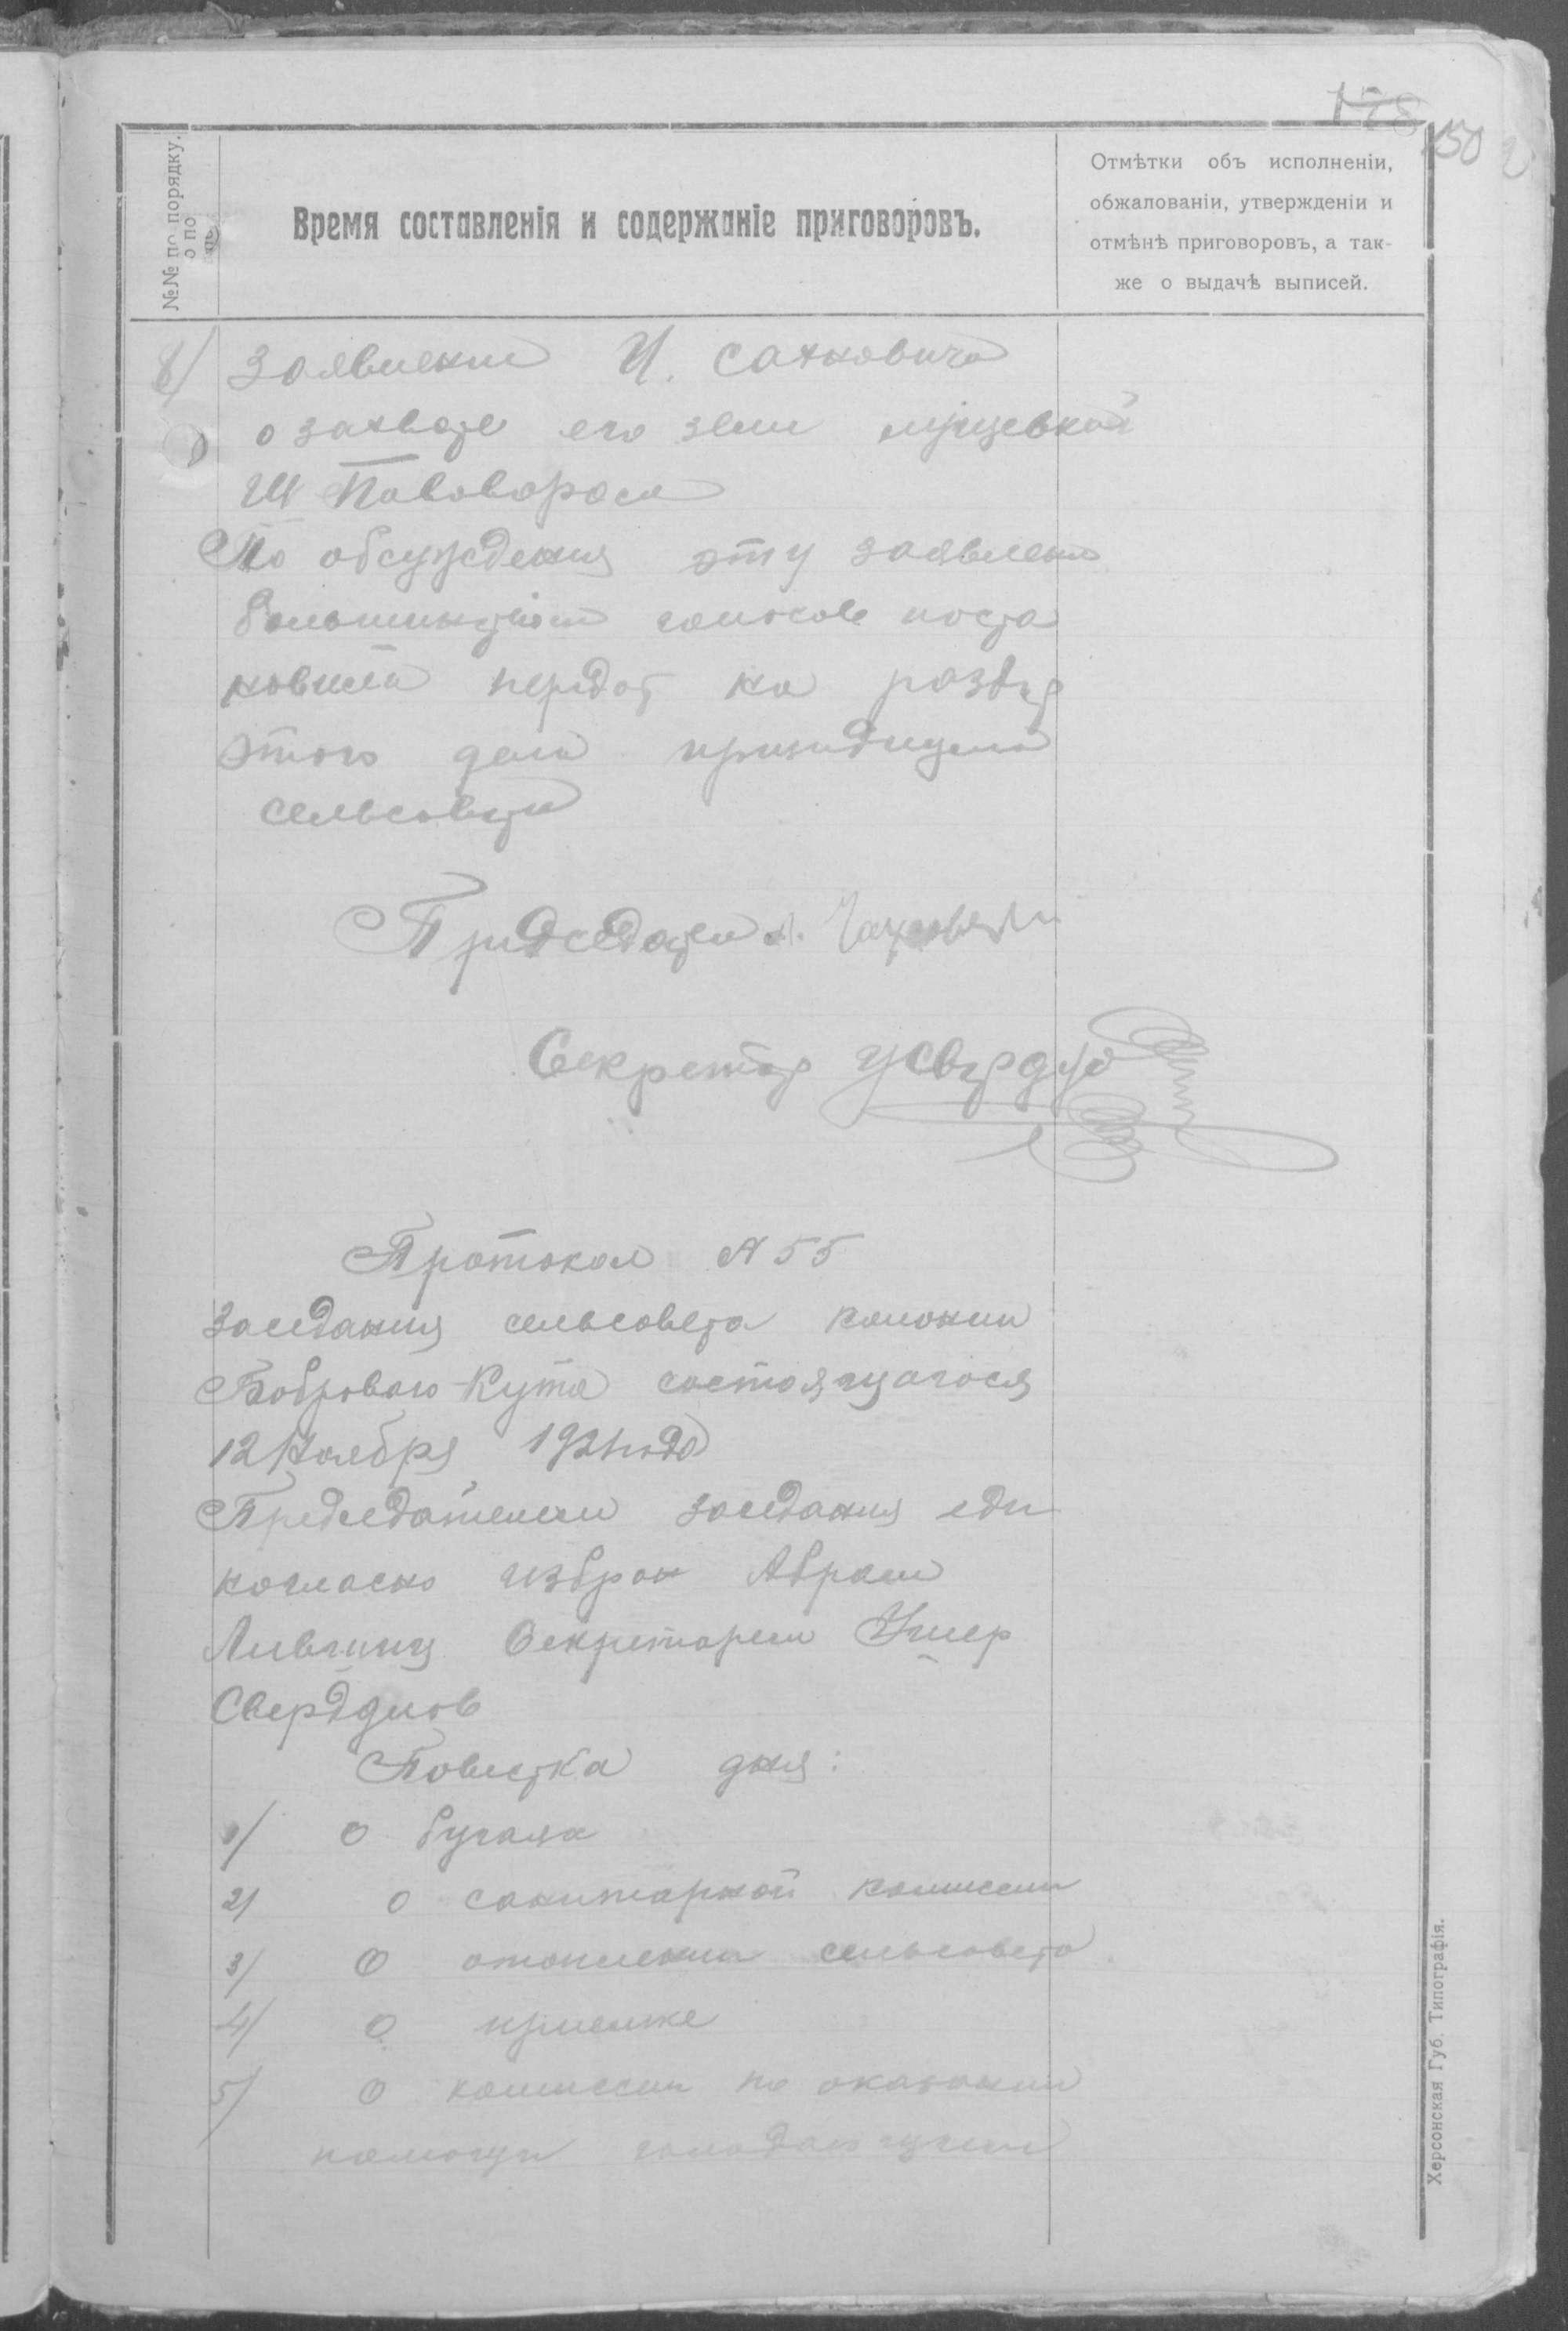 178
150
№№ по порядку.
Время составленія и содержаніе приговоровъ.
Отмѣтки объ исполненіи,
обжалованіи, утвержденіи и
отмѣнѣ приговоровъ, а так-
же о выдачѣ выписей.
8/ Заявлении И. Сахновича
о захвате его земли
По обсуждения эту заявлени
большинством голосов поста
новили передат на розбер
этого дела призидиума
сельсовета
Председатель
Секретар УСвердло
Протокол N 55
Заседания сельсовета колонии
Бобровый-Кута состоящагося
12 Ноября 1921 года
Председателем заседания еди
ногласно избран Абрам
Лившиц Секретарем Ушер
Свердлов
Повестка дня:
1/ О бугаях
2/ О санитарной комиссии
3/ О отоплении сельсовета
4/ О
5/ О комиссии по оказании
помощи голодающим
Херсонская Губ. Типографія.